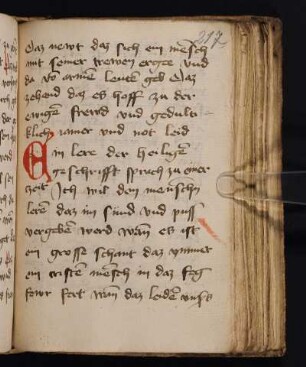 217
Daz newt daz sich ein mesch
mit seiner trewen erger vnd
da vō armē leutē geb Daz
zehend daz es hoff zu der
ewigē frewd vnd gedult
klich iamer vnd not leid
Ein lere der heiligē
geschrifft sprach zu einer
zeit Ich wil den menschn
lerē daz im sund vnd puss
vergebē werd wan es ist
ein grosse schant daz ymmer
ein cristē mesch in daz feg
fewr fert wan daz leidē vnss